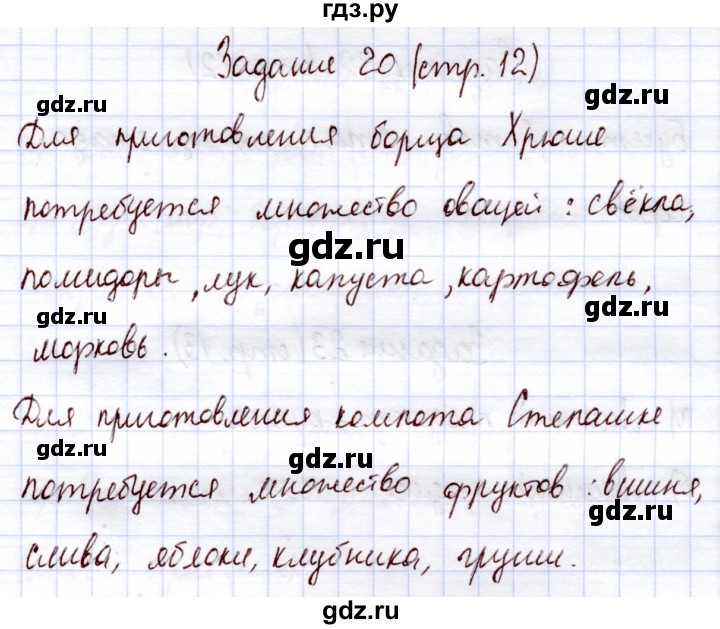 гдз.ру
Задание 20 (стр. 12)
gdz.ru
gdz.ru
Для приготовления борща Хрюше
gdz.ru
потребуется множество овощей : свёкла,
gdz.ru
помидоры, лук, капуста, картофель,
gdz.ru
gdz.ru
морковь.
Для приготовления компота Степашке
gdz.ru
gdz.ru
потребуется множество фруктов : вишня,
gdz.ru
gdz.ru
слива, яблоки, клубника, груши.
gdz.ru